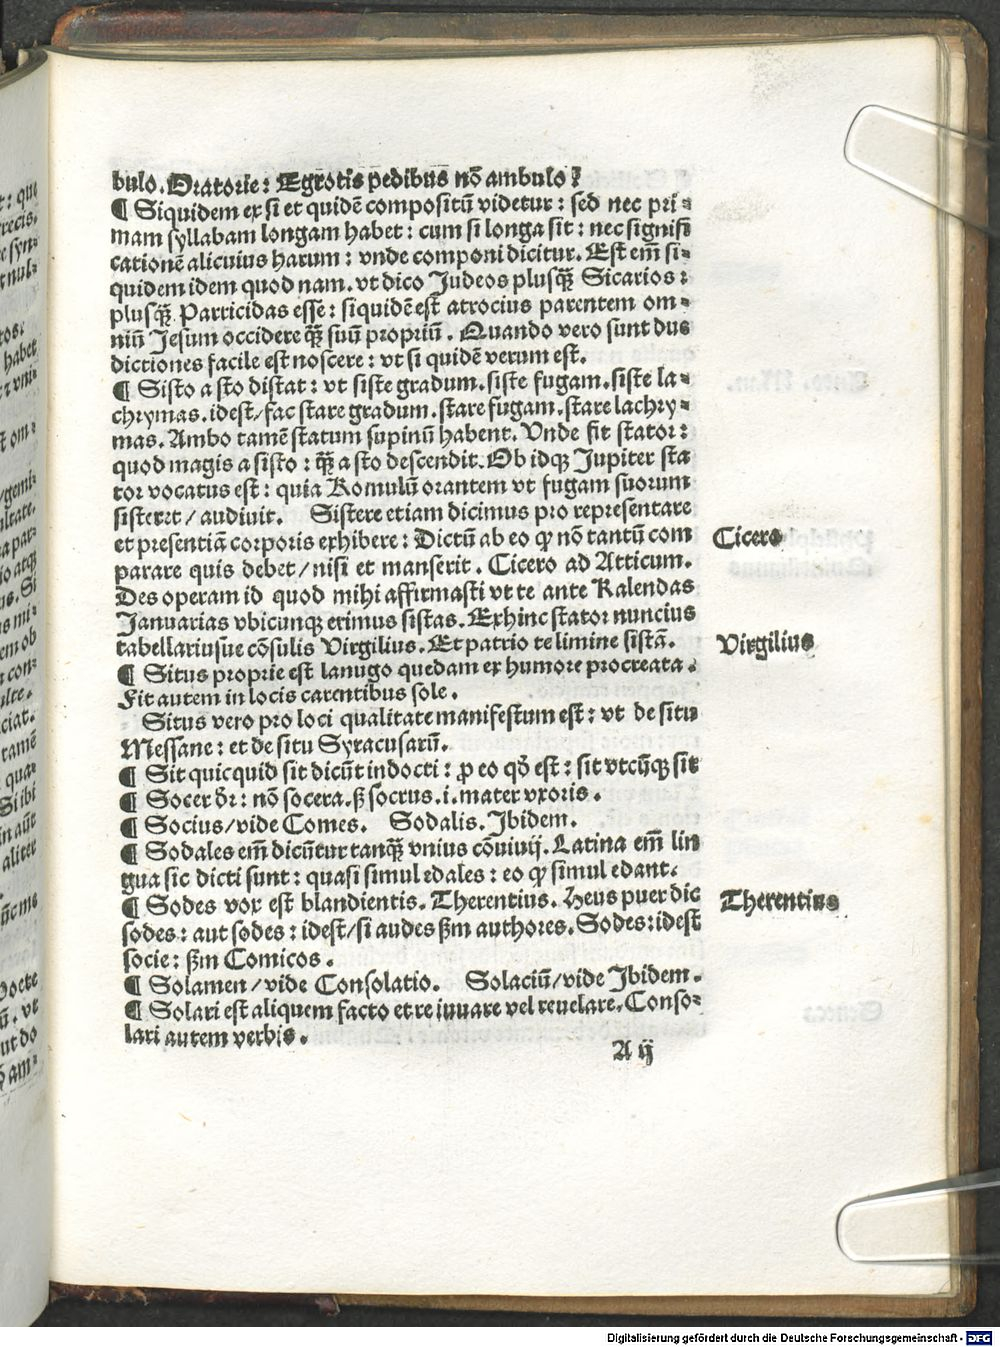 bulo. Oratorie: Egrotis pedibus nō ambulo?
¶ Siquidem ex si et quidē compositū videtur: sed nec pri⸗
mam syllabam longam habet: cum si longa sit: nec signifi
cationē alicuius harum: vnde componi dicitur. Est em̄ si⸗
quidem idem quod nam. vt dico Judeos plusq̄ Sicarios:
plusq̄ Parricidas esse: siquidē est atrocius parentem om⸗
niū Jesum occidere q̄ suū propriū. Quando vero sunt due
dictiones facile est noscere: vt si quidē verum est.
¶ Sisto a sto distat: vt siste gradum. siste fugam. siste la⸗
chrymas. idest/fac stare gradum. stare fugam. stare lachry⸗
mas. Ambo tamē statum supinū habent. Vnde fit stator:
quod magis a sisto: q̄ a sto descendit. Ob idqꝫ Jupiter sta
tor vocatus est: quia Romulū orantem vt fugam suorum
sisteret/audiuit. Sistere etiam dicimus pro representare
et presentiā corporis exhibere: Dictū ab eo ꝙ nō tantū com
parare quis debet/nisi et manserit. Cicero ad Atticum.
Des operam id quod mihi affirmasti vt te ante Kalendas
Januarias vbicunqꝫ erimus sistas. Exhinc stator nuncius
tabellariusue cōsulis Virgilius. Et patrio te limine sistā.
¶ Situs proprie est lanugo quedam ex humore procreata.
Fit autem in locis carentibus sole.
Situs vero pro loci qualitate manifestum est: vt de situ
Messane: et de situ Syracusarū.
¶ Sit quicquid sit dicūt indocti: ꝓ eo qđ est: sit vtcūqꝫ sit
¶ Socer dr̄: nō socera. ß socrus. i. mater vxoris.
¶ Socius/vide Comes. Sodalis. Ibidem.
¶ Sodales em̄ dicūtur tanq̄ vnius cōuiuij. Latina em̄ lin
gua sic dicti sunt: quasi simul edales: eo ꝙ simul edant.
¶ Sodes vox est blandientis. Therentius. Heus puer dic
sodes: aut sodes: idest/si audes ßm authores. Sodes: idest
socie: ßm Comicos.
¶ Solamen/vide Consolatio. Solaciū/vide Ibidem.
¶ Solari est aliquem facto et re iuuare vel reuelare. Conso⸗
lari autem verbis.
A ij
Cicero
Virgilius
Therentius
Digitalisierung gefördert durch die Deutsche Forschungsgemeinschaft - DFG